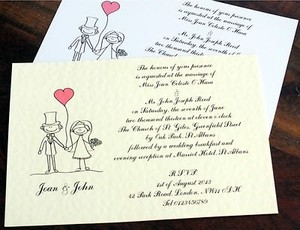 The honour of your presence
is requested at the marriage of
Miss Joan Celeste O'Hara
&
Mr John Joseph Reed
on Saturday, the seventh of June
two thousand thirteen at eleven o'clock
The Church of St. Giles, Greenfield Street
by Oak Park, St. Albans
followed by a wedding breakfast and
evening reception at Marriot Hotel, St. Albans
R S V P
1st of August 2013
42 Park Road, London, NW11 0DH
Tel 0123456789
Joan & John
The honour of your presence
is requested at the marriage of
Miss Joan Celeste O'Hara
&
Mr John Joseph Reed
on Saturday, the seventh of
two thousand thirteen at
The Church